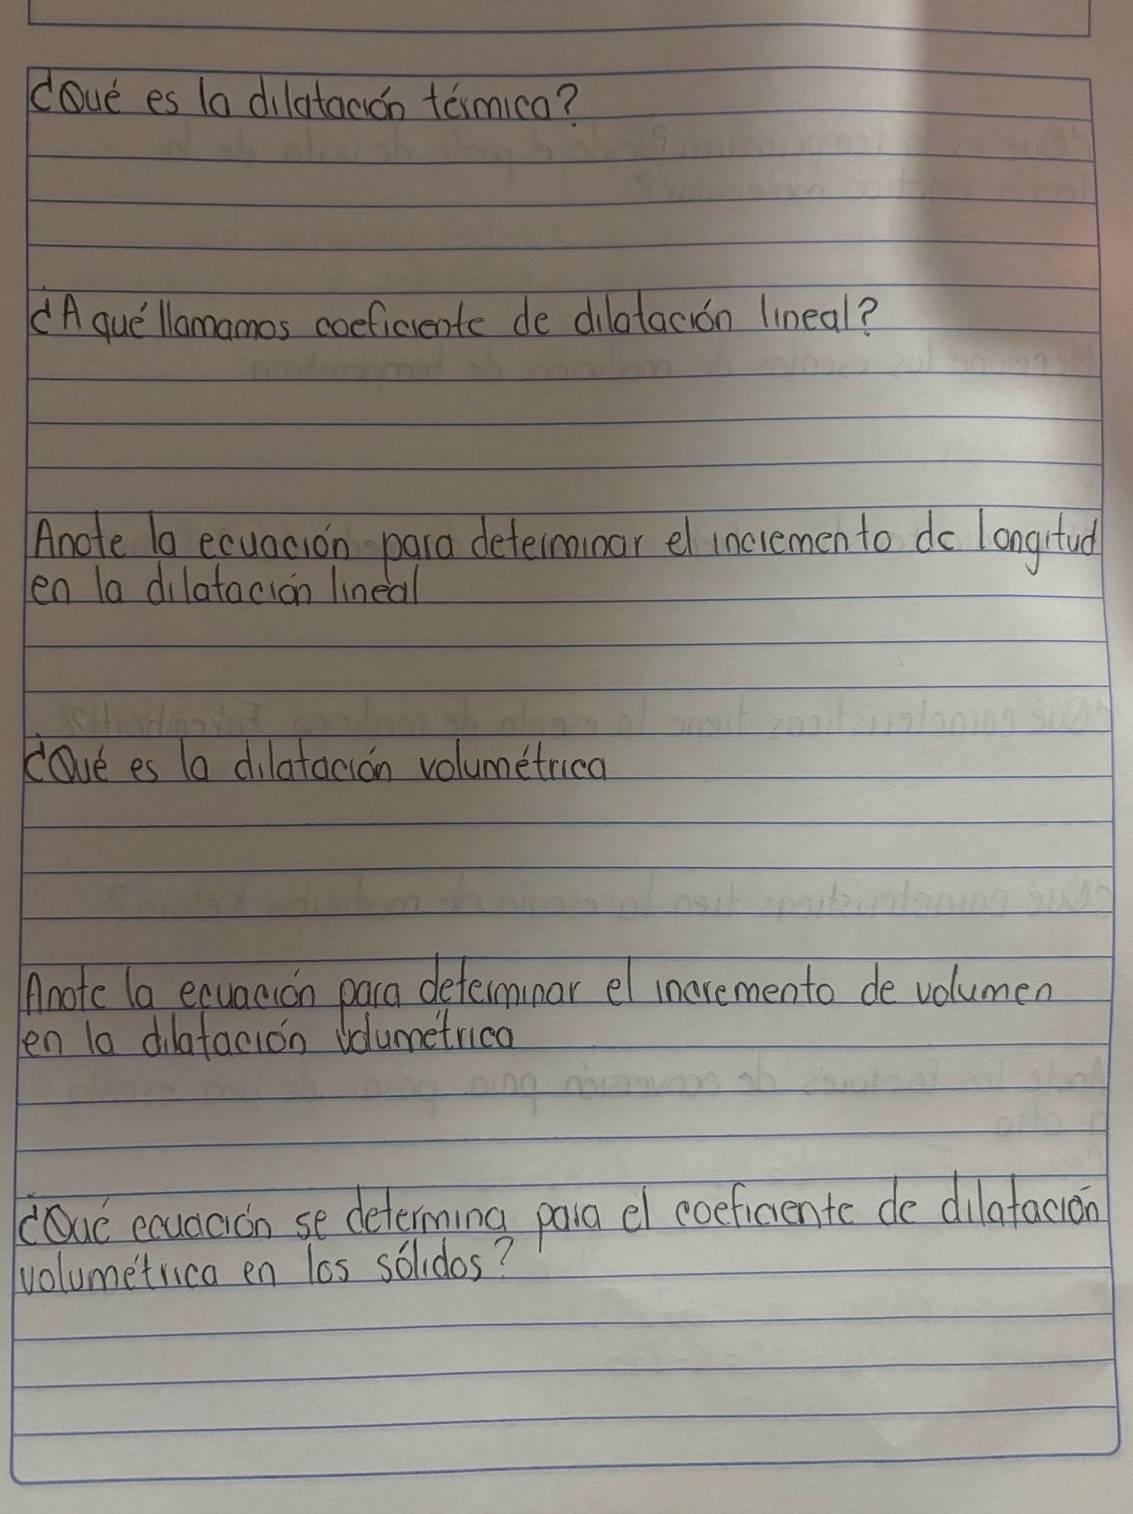 ¿Qué es la dilatación térmica?
¿A qué llamamos coeficiente de dilatación lineal?
Anote la ecuación para determinar el incremento de longitud
en la dilatación lineal
¿Qué es la dilatación volumétrica
Anote la ecuación para determinar el incremento de volumen
en la dilatación volumétrica
¿Qué ecuación se determina para el coeficiente de dilatación
volumétrica en los sólidos?